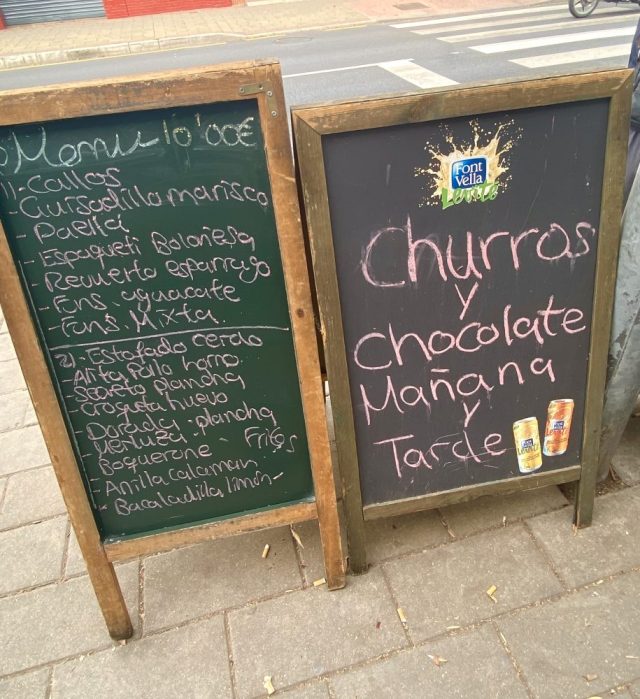 Menu 10'00€
1)- Callos
- Guisadilla marisco
- Paella
- Espagueti Boloñesa
- Revuerto esparrago
- Ens. aguacate
- Ens. Mixta.
2)- Estofado cerdo
- Alita Pollo horno
- Secreto plancha
- Croqueta huevo
- Dorada - plancha
- Merluza
- Boquerone - Fritos
- Anilla calamar
- Bacaladilla limón-
Font
Vella
Levité
Churros
y
Chocolate
Mañana
y
Tarde